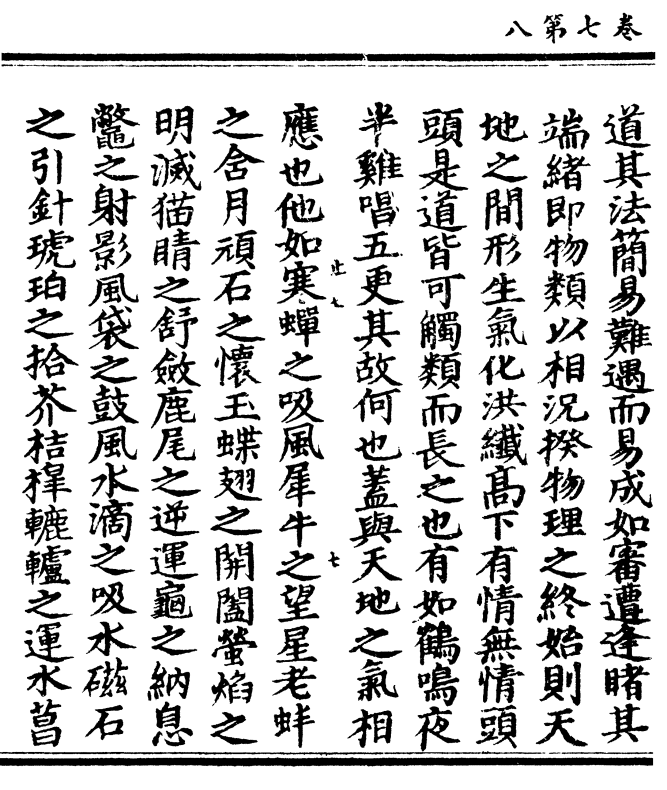 卷七第八
道其法簡易難遇而易成如審遭逢睹其
端緒即物類以相況揆物理之終始則天
地之間形生氣化洪纖高下有情無情頭
頭是道皆可觸類而長之也有如鶴鳴夜
半雞唱五更其故何也蓋與天地之氣相
應也他如寒蟬之吸風犀牛之望星老蚌
之含月頑石之懷玉蝶翅之開闔螢焰之
明滅猫睛之舒斂鹿尾之逆運龜之納息
鼈之射影風袋之鼓風水滴之吸水磁石
之引針琥珀之拾芥桔槹轆轤之運水菖